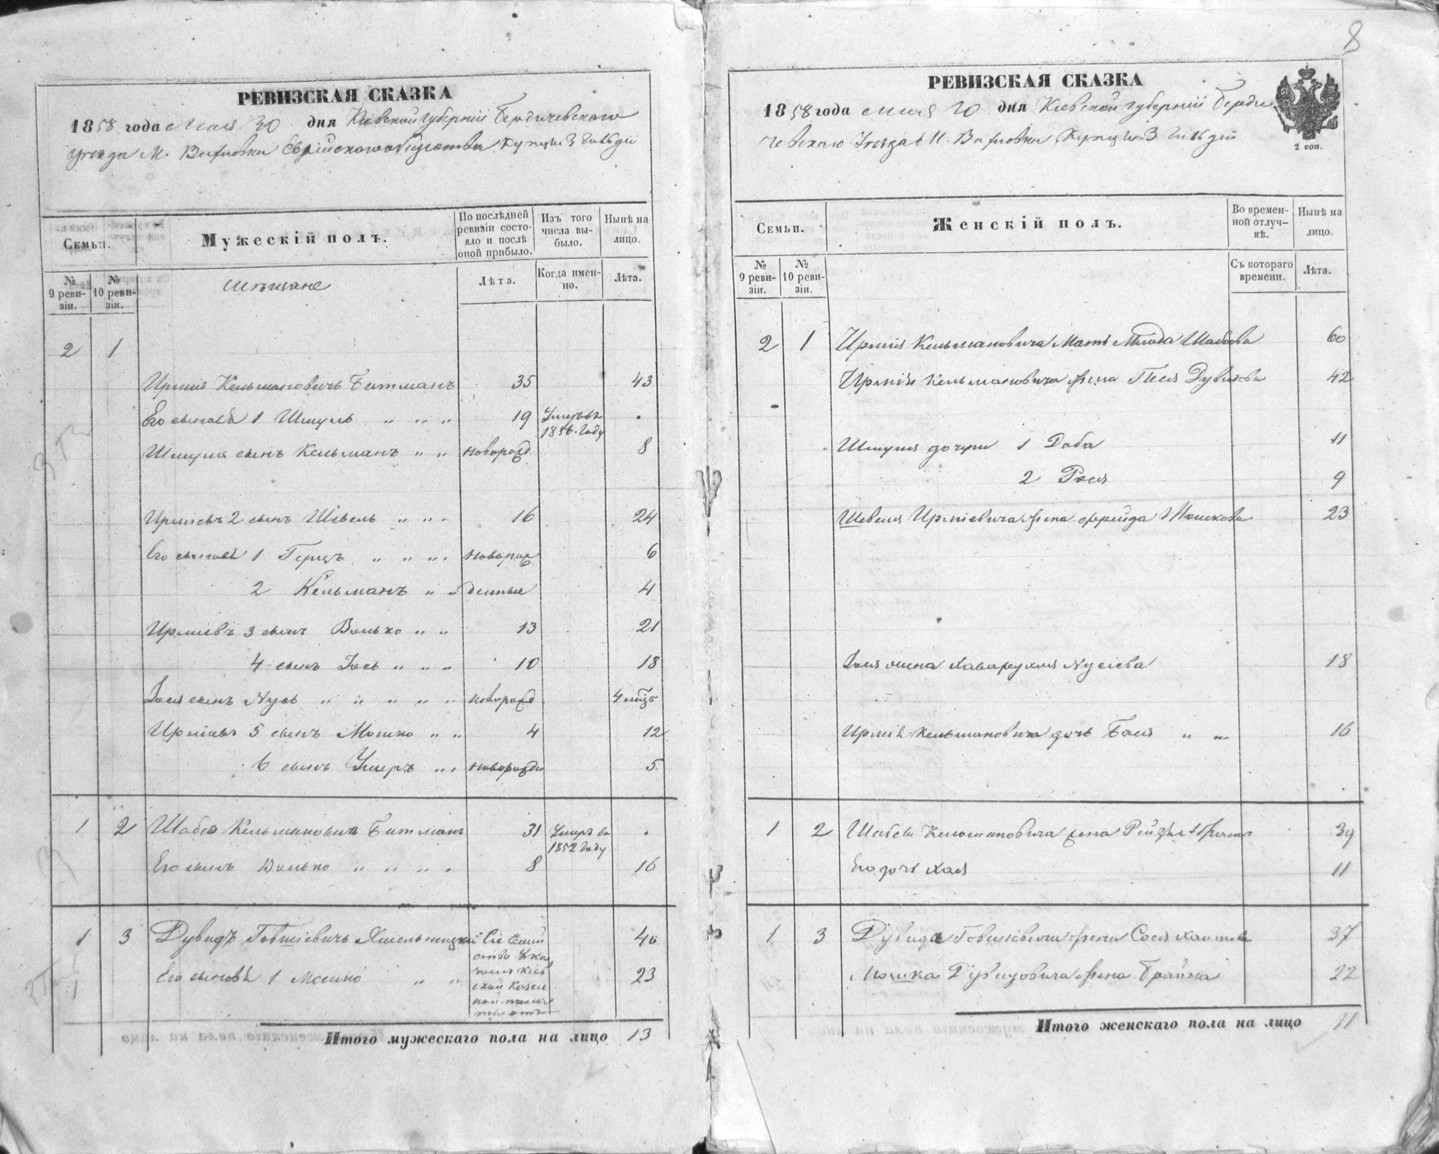 8
РЕВИЗСКАЯ СКАЗКА
1858 года Мая 30 дня Киевской губернии Бердичевского
уезда М. Вахновки Еврейского общества Купцы 3 гильдии
Семьи.
Мужескій полъ.
По послѣдней ревизіи состояло и послѣ оной прибыло.
Изъ того числа выбыло.
Нынѣ на лицо.
№ 9 ревизіи.
№ 10 ревизіи.
Мѣщане
Лѣта.
Когда именно.
Лѣта.
2 1
Ирмія Кельмановичъ Битманъ 35 43
Его сыновья 1 Шмуль " " " 19 Умеръ въ 1856 году
Шмуля сынъ Кельманъ " " новорожд 8
Ирміевъ 2 сынъ Шевель " " " 16 24
Его сыновья 1 Герцъ " " " новорож 6
2 Кельманъ " " денные 4
Ирміевъ 3 сынъ Волько " " 13 21
4 сынъ Іось " " " 10 18
Іося сынъ Нусь " " " " " новорожд 4 мѣс
Ирміевъ 5 сынъ Мошко " " 4 12
6 сынъ Умеръ " " новорожд 5
1 2 Шабса Кельмановичъ Битманъ 31 Умеръ въ 1852 году
Его сынъ Волько " " " " 8 16
1 3 Дувидъ Говшіевичъ Хмельницкій 40
Его сыновья 1 Мошко " " 23
Итого мужескаго пола на лицо 13
РЕВИЗСКАЯ СКАЗКА
1858 года Мая 30 дня Киевской губернии Берди
чевского Уезда М. Вахновки Купцы 3 гильдии
2 коп.
Семьи.
Женскій полъ.
Во временной отлучкѣ.
Нынѣ на лицо.
№ 9 ревизіи.
№ 10 ревизіи.
Съ котораго времени.
Лѣта.
2 1 Ирмія Кельмановича Мать 60
Ирмія Кельмановича жена Песя Дувидова 42
Шмуля дочери 1 Доба 11
2 Рося 9
Шевеля Ирміевича жена Фрейда 23
Іося жена Нусіева 18
Ирмія Кельмановича дочь Бася " " 16
1 2 Шабсы Кельмановича жена 39
Его дочь Хая 11
1 3 Дувида Говшіевича жена Сося 37
Мошка Дувидовича жена Брайна 22
Итого женскаго пола на лицо 11